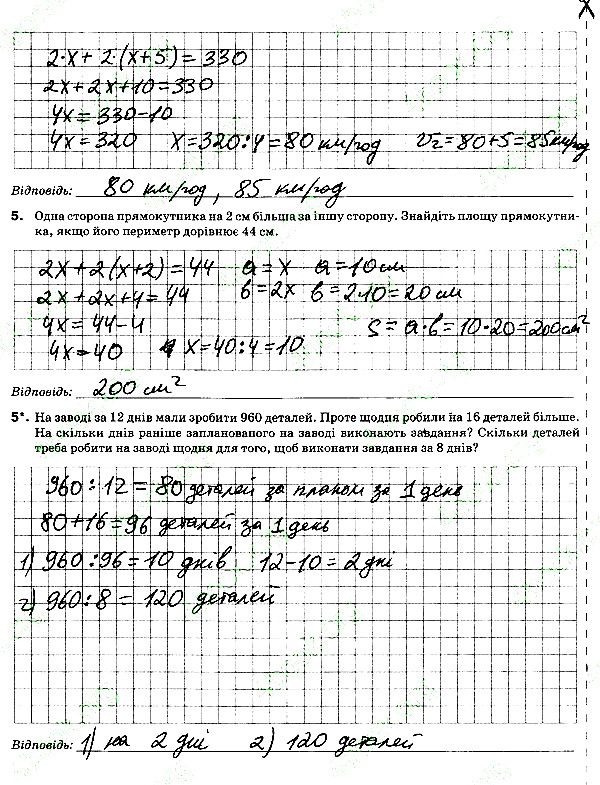 2·x + 2·(x+5) = 330
2x + 2x + 10 = 330
4x = 330 - 10
4x = 320 x = 320 : 4 = 80 км/год v₂ = 80 + 5 = 85 км/год
Відповідь: 80 км/год, 85 км/год
5. Одна сторона прямокутника на 2 см більша за іншу сторону. Знайдіть площу прямокутни-
ка, якщо його периметр дорівнює 44 см.
2x + 2(x+2) = 44 a = x a = 10 см
2x + 2x + 4 = 44 в = 2x в = 2·10 = 20 см
4x = 44 - 4 S = a·в = 10·20 = 200 см²
4x = 40 x = 40 : 4 = 10
Відповідь: 200 см²
5*. На заводі за 12 днів мали зробити 960 деталей. Проте щодня робили на 16 деталей більше.
На скільки днів раніше запланованого на заводі виконають завдання? Скільки деталей
треба робити на заводі щодня для того, щоб виконати завдання за 8 днів?
960 : 12 = 80 деталей за планом за 1 день
80 + 16 = 96 деталей за 1 день
1) 960 : 96 = 10 днів 12 - 10 = 2 дні
2) 960 : 8 = 120 деталей
Відповідь: 1) на 2 дні 2) 120 деталей